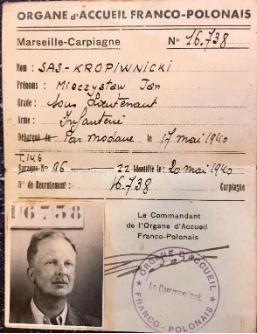 ORGANE d'ACCUEIL FRANCO-POLONAIS
Marseille-Carpiagne N° 16.738
Nom : SAS-KROPIWNICKI
Prénoms : Mieczysław Jan
Grade : Sous Lieutenant
Arme : Infanterie
Débarqué à Par Modane le 17 mai 1940
T.146
Baraque N° 06 22 Identifié le : 20 mai 1940
N° de Recrutement : 16.738 Carpiagne
16738
Le Commandant
de l'Organe d'Accueil
Franco-Polonais
ORGANE D'ACCUEIL
Le Commandant
FRANCO-POLONAIS